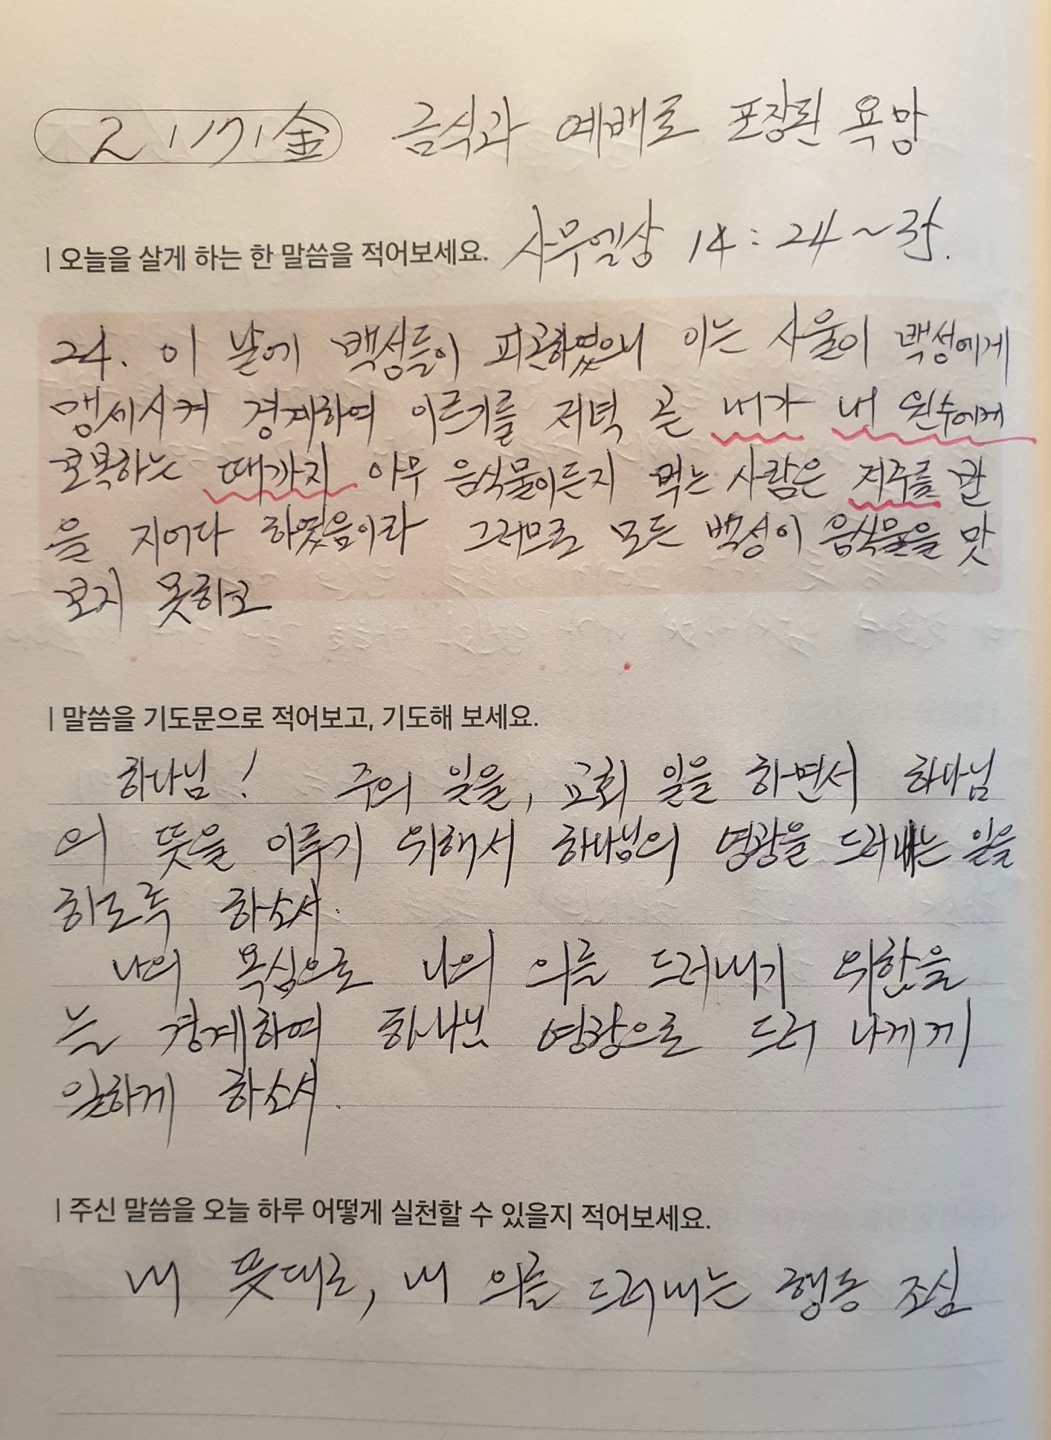 2/17/金 금식과 예배로 포장된 욕망
| 오늘을 살게 하는 한 말씀을 적어보세요. 사무엘상 14:24~35.
24. 이 날에 백성들이 피곤하였으니 이는 사울이 백성에게
맹세시켜 경계하여 이르기를 저녁 곧 내가 내 원수에게
보복하는 때까지 아무 음식물이든지 먹는 사람은 저주를 받
을 지어다 하였음이라 그러므로 모든 백성이 음식물을 맛
보지 못하고
| 말씀을 기도문으로 적어보고, 기도해 보세요.
하나님! 주의 일을, 교회 일을 하면서 하나님
의 뜻을 이루기 위해서 하나님의 영광을 드러내는 일을
하도록 하소서.
나의 욕심으로 나의 의를 드러내기
는 경계하여 하나님 영광으로 드러
일하게 하소서.
| 주신 말씀을 오늘 하루 어떻게 실천할 수 있을지 적어보세요.
내 뜻대로, 내 의를 드러내는 행동 조심